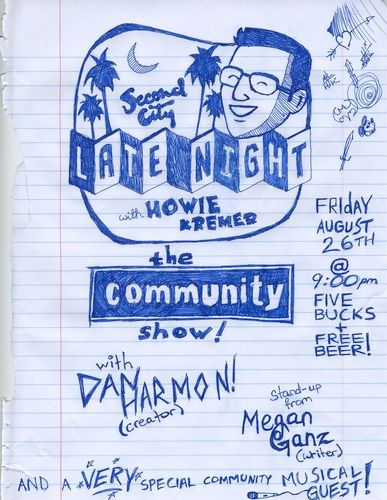 Second
City
LATE NIGHT
with HOWIE
KREMER
the
community
show!
FRIDAY
AUGUST
26TH
@
9:00pm
FIVE
BUCKS
+
FREE
BEER!
with
DAN HARMON!
(creator)
Stand-up
from
Megan
Ganz
(writer)
AND A VERY SPECIAL COMMUNITY MUSICAL
GUEST!